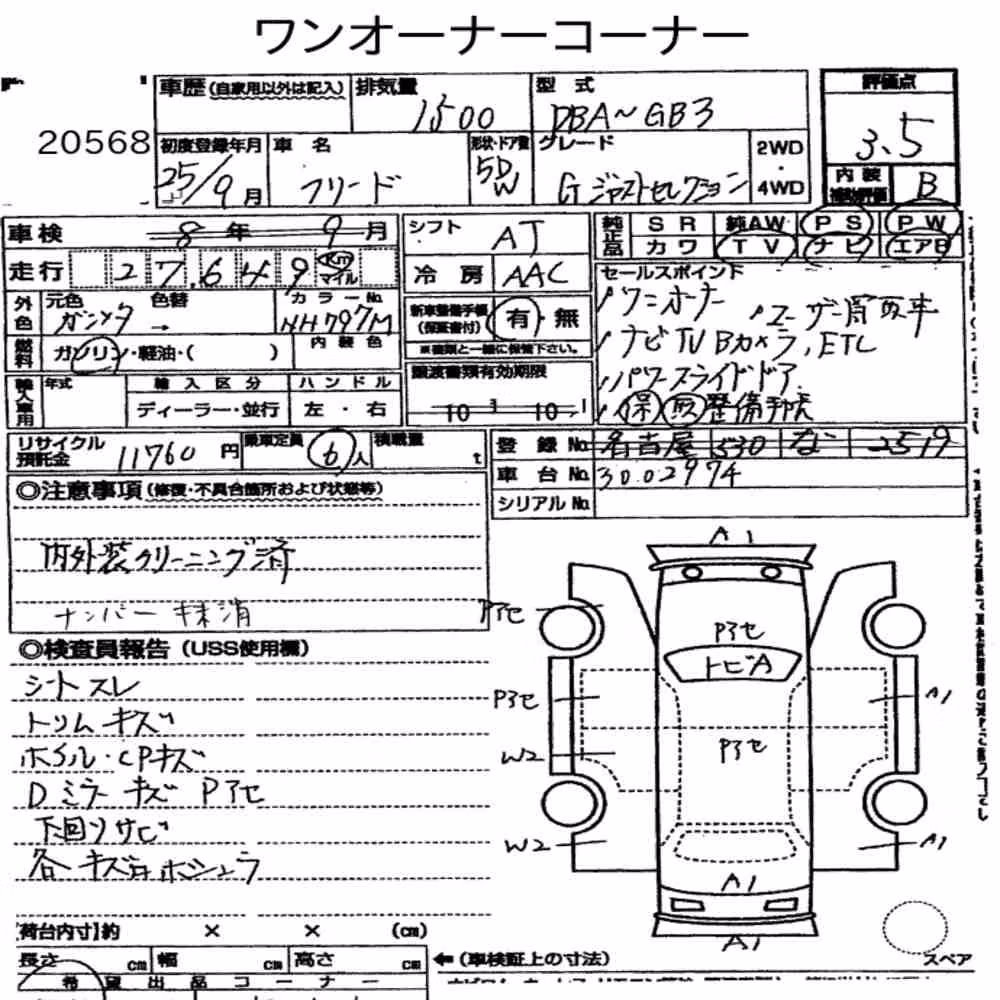 ワンオーナーコーナー
20568
車歴(自家用以外は記入) 排気量 1500 型式 DBA~GB3 評価点 3.5
初度登録年月 25/9月 車名 フリード 形状・ドア数 5D W グレード Gジャストセレクション 2WD・4WD 内装補助評価 B
車検 8年 9月 シフト AT 純正品 SR 純AW PS PW
カワ TV ナビ エアB
走行 27,649 km マイル 冷房 AAC セールスポイント
外色 元色 ガンメタ 色替 → カラーNo. NH797M 新車整備手帳(保証書付) 有・無 ワンオーナー ユーザー買取車
内装色 ※書類と一緒に保管下さい。 ナビTV Bカメラ, ETC
燃料 ガソリン・軽油・( ) 譲渡書類有効期限 パワースライドドア
輸入車用 年式 輸入区分 ハンドル 10 10 保 取 整備手帳
ディーラー・並行 左・右
リサイクル預託金 11760円 乗車定員 6人 積載量 t 登録No. 名古屋 530 な 2519
車台No. 3002974
シリアルNo.
◎注意事項(修復・不具合箇所および状態等)
内外装クリーニング済
ナンバー抹消
◎検査員報告(USS使用欄)
シートスレ
トリムキズ
ホイル・CPキズ
Dミラーキズ Pアセ
下回りサビ
各キズ凹ボシュラ
A1
Pアセ
Pアセ
トビA
Pアセ A1
Pアセ
W2
W2 A1
A1
A1
【荷台内寸】約 × × (cm)
長さ cm 幅 cm 高さ cm ←(車検証上の寸法) スペア
希望出品コーナー